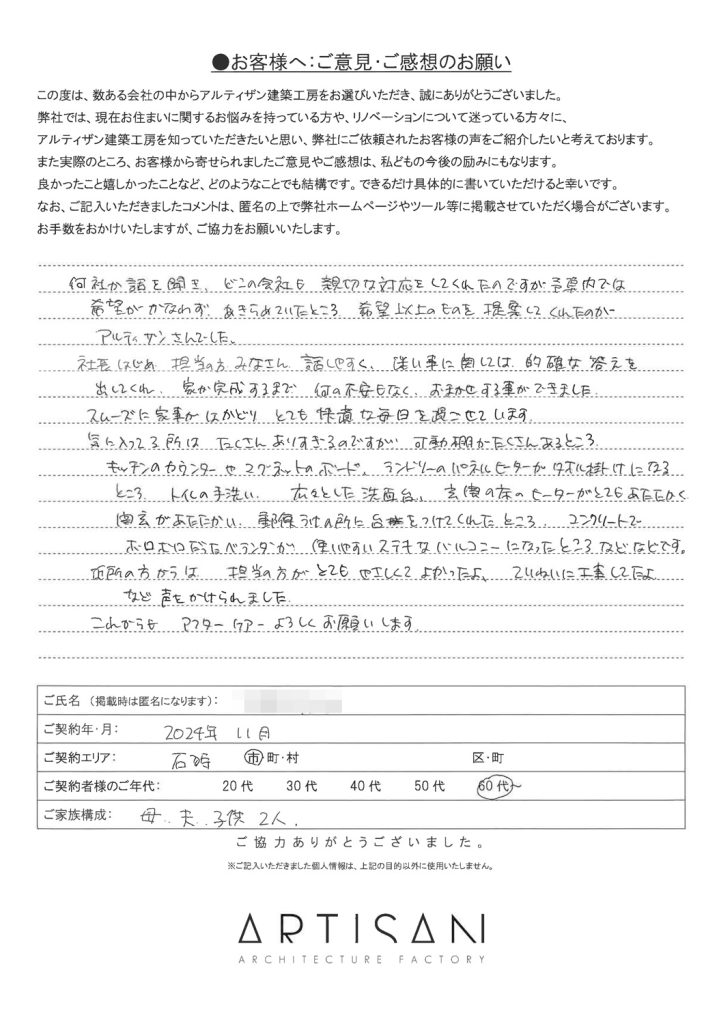 ●お客様へ:ご意見・ご感想のお願い
この度は、数ある会社の中からアルティザン建築工房をお選びいただき、誠にありがとうございました。
弊社では、現在お住まいに関するお悩みを持っている方や、リノベーションについて迷っている方々に、
アルティザン建築工房を知っていただきたいと思い、弊社にご依頼されたお客様の声をご紹介したいと考えております。
また実際のところ、お客様から寄せられましたご意見やご感想は、私どもの今後の励みにもなります。
良かったこと嬉しかったことなど、どのようなことでも結構です。できるだけ具体的に書いていただけると幸いです。
なお、ご記入いただきましたコメントは、匿名の上で弊社ホームページやツール等に掲載させていただく場合がございます。
お手数をおかけいたしますが、ご協力をお願いいたします。
何社か話を聞き、どこの会社も 親切な対応をしてくれたのですが予算内では
希望がかなわず あきらめていたところ 希望以上のものを提案してくれたのが
アルティザンさんでした。
社長はじめ 担当の方 みなさん 話しやすく、 事に関しては 的確な答えを
出してくれ、家が完成するまで 何の不安もなく、おまかせする事ができました。
スムーズに家事がはかどり とても快適な毎日を過ごせています。
気に入ってる所は たくさんありすぎるのですが 可動棚がたくさんあるところ
キッチンのカウンターや マグネットのボード、ランドリーのパネルヒーターがタオル掛けになる
ところ トイレの手洗い、広々とした洗面台、玄関の床のヒーターがとてもあたたかく
関玄があたたかい、郵便うけの所に台をつけてくれたところ、コンクリートで
ボロボロだったベランダが、使いやすいステキなバルコニーになったところなどなどです。
近所の方からは、担当の方がとてもやさしくてよかったよ、ていねいに工事してたよ
など声をかけられました。
これからも アフターケアーよろしくお願いします。
ご氏名 (掲載時は匿名になります):
ご契約年・月: 2024年 11月
ご契約エリア: 石狩 市・町・村 区・町
ご契約者様のご年代: 20代 30代 40代 50代 60代~
ご家族構成: 母、夫、子供2人、
ご協力ありがとうございました。
※ご記入いただきました個人情報は、上記の目的以外に使用いたしません。
ARTISAN
ARCHITECTURE FACTORY